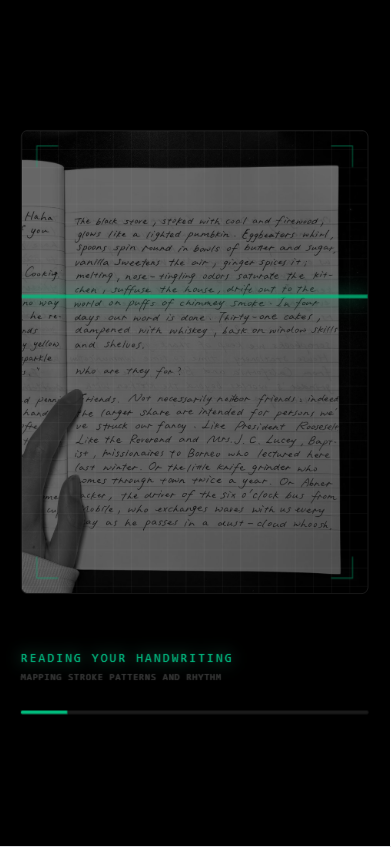 Haha
you
Cooking
no way
he re-
nds
y yellow
parkle
The black stove, stoked with coal and firewood,
glows like a lighted pumpkin. Eggbeaters whirl,
spoons spin round in bowls of butter and sugar,
vanilla sweetens the air, ginger spices it;
melting, nose-tingling odors saturate the kit-
chen, suffuse the house, drift out to the
world on puffs of chimney smoke. In four
days our world is done. Thirty-one cakes,
dampened with whiskey, bask on window skills
and shelves.
Who are they for?
Friends. Not necessarily friends, indeed
the larger share are intended for persons we'
ve struck our fancy. Like President Roosevelt
Like the Reverend and Mrs. J. C. Lucey, Bapt-
ist, missionaires to Borneo who lectured here
last winter. Or the little knife grinder who
comes through town twice a year. Or Abner
acker, the driver of the six o'clock bus from
Mobile, who exchanges waves with us every
ay as he passes in a dust-cloud whoosh.
READING YOUR HANDWRITING
MAPPING STROKE PATTERNS AND RHYTHM